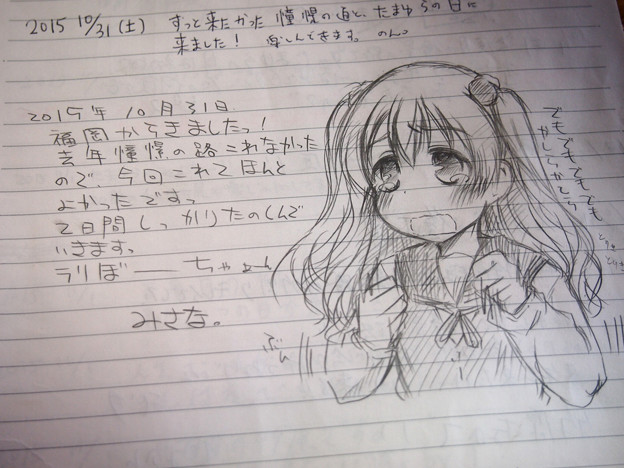 2015 10/31(土) ずっと来たかった 憧憬の道と、たまゆらの日に
来ました! 楽しんできます。 のん。
2015年10月31日
福岡からきましたっ!
去年憧憬の路これなかった
ので、今回これてほんと
よかったですっ
2日間しっかりたのしんで
いきます。
ラリぼーーちゃん
みさな。
でもでもでもでも
かしらかしら
ぶん